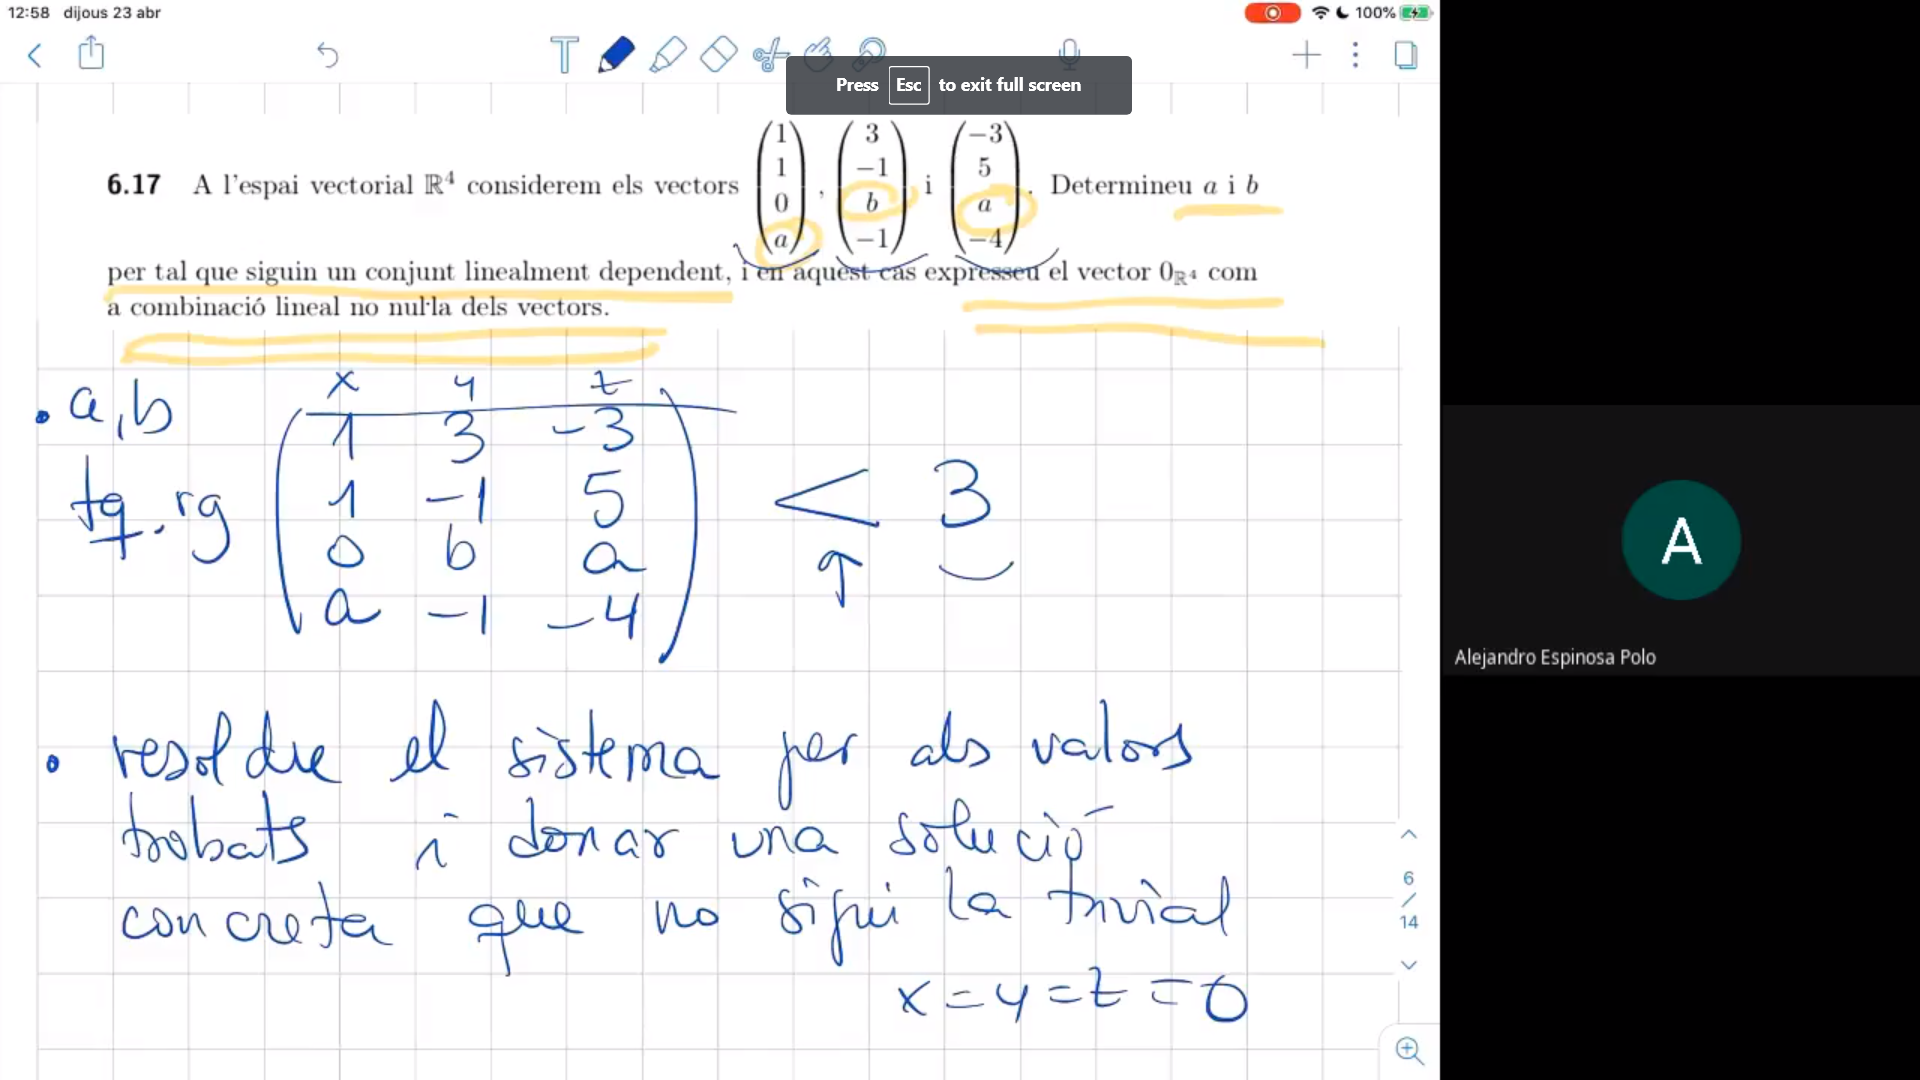 12:58 dijous 23 abr
100%
Press Esc to exit full screen
6.17 A l'espai vectorial ℝ⁴ considerem els vectors (1 1 0 a), (3 −1 b −1) i (−3 5 a −4). Determineu a i b
per tal que siguin un conjunt linealment dependent, i en aquest cas expresseu el vector 0_ℝ⁴ com
a combinació lineal no nul·la dels vectors.
x y z
• a,b
1 3 -3
1 -1 5
tq. rg
< 3
0 b a
a -1 -4
• resoldre el sistema per als valors
trobats i donar una solució
concreta que no sigui la trivial
x = y = z = 0
6
/
14
A
Alejandro Espinosa Polo